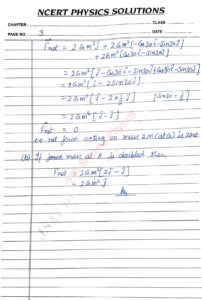 NCERT PHYSICS SOLUTIONS
CHAPTER :
CLASS :
PAGE NO. : 3
DATE :
Fnet = 2Gm²ĵ + 2Gm²[-Cos30 î - Sin30 ĵ]
+ 2Gm²[Cos30 î - Sin30 ĵ]
= 2Gm²[ĵ - Cos30 î - Sin30 ĵ + Cos30 î - Sin30 ĵ]
= 2Gm²[ĵ - 2Sin30 ĵ]
= 2Gm²[ĵ - 2 × ½ ĵ] [Sin30 = ½]
= 2Gm²[ĵ - ĵ]
Fnet = 0
net force acting on mass 2m (at G) is zero.
(b) If mass at A is doubled then
Fnet = 2Gm²[2ĵ - ĵ]
= 2Gm²ĵ